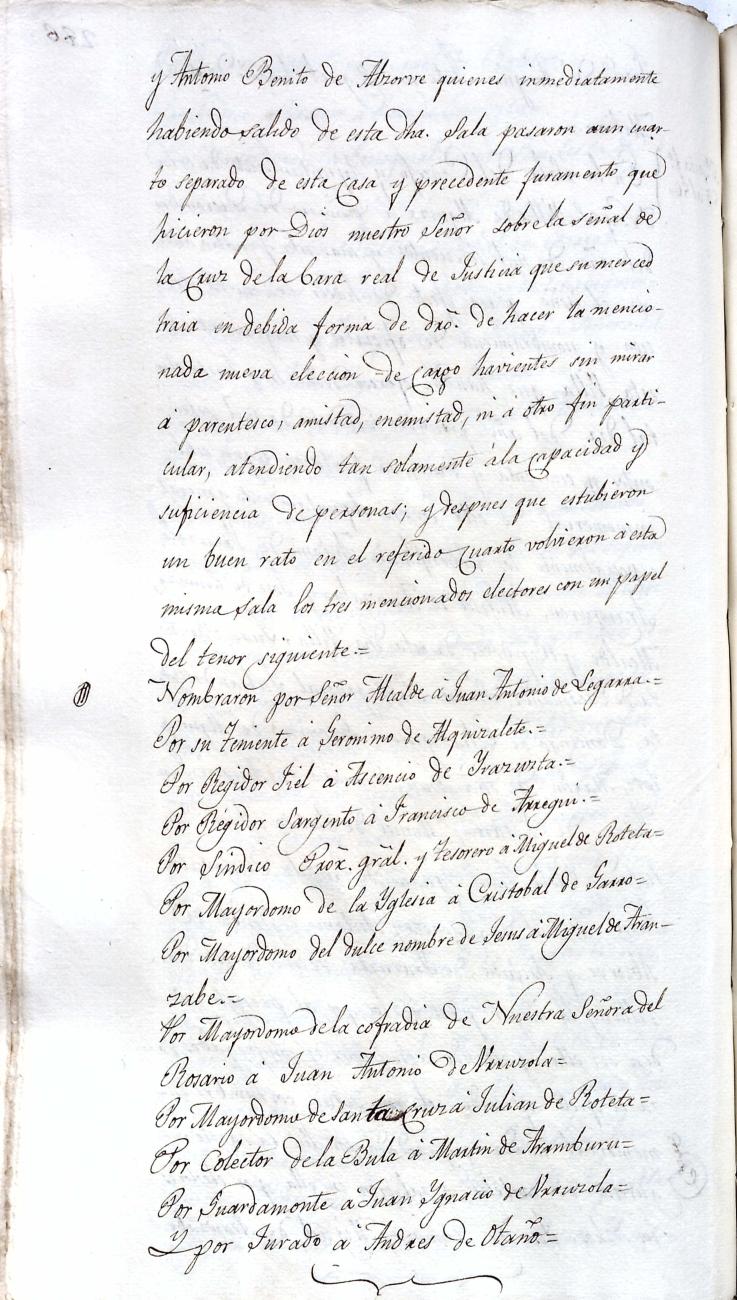 y Antonio Benito de Alzorve quienes inmediatamente
habiendo salido de esta dha. Sala pasaron aun cuar-
to separado de esta Casa y precedente Juramento que
hicieron por Dios nuestro Señor sobre la señal de
la Cruz de la Bara real de Justicia que su merced
traia en debida forma de dró. de hacer la mencio-
nada nueva eleccion de cargo havientes sin mirar
á parentesco, amistad, enemistad, ni á otro fin parti-
cular, atendiendo tan solamente ála capacidad y
suficiencia de personas; y despues que estubieron
un buen rato en el referido Cuarto volvieron á esta
misma Sala los tres mencionados electores con un papel
del tenor siguiente.=
Nombraron por Señor Alcalde á Juan Antonio de Legarra.=
Por su Teniente á Geronimo de Alquizalete.=
Por Regidor Fiel á Ascencio de Yrazuzta.=
Por Regidor Sargento á Francisco de Arregui.=
Por Sindico Prór. grâl. y Tesorero á Miguel de Roteta=
Por Mayordomo de la Yglesia á Cristobal de Garro=
Por Mayordomo del dulce nombre de Jesus á Miguel de Aran-
zabe.=
Por Mayordomo de la cofradia de Nuestra Señora del
Rosario á Juan Antonio de Urruzola=
Por Mayordomo de Santa Cruz á Julian de Roteta=
Por Colector de la Bula á Martin de Aramburu=
Por Guardamonte á Juan Ygnacio de Urruzola=
Y por Jurado á Andres de Otaño.=